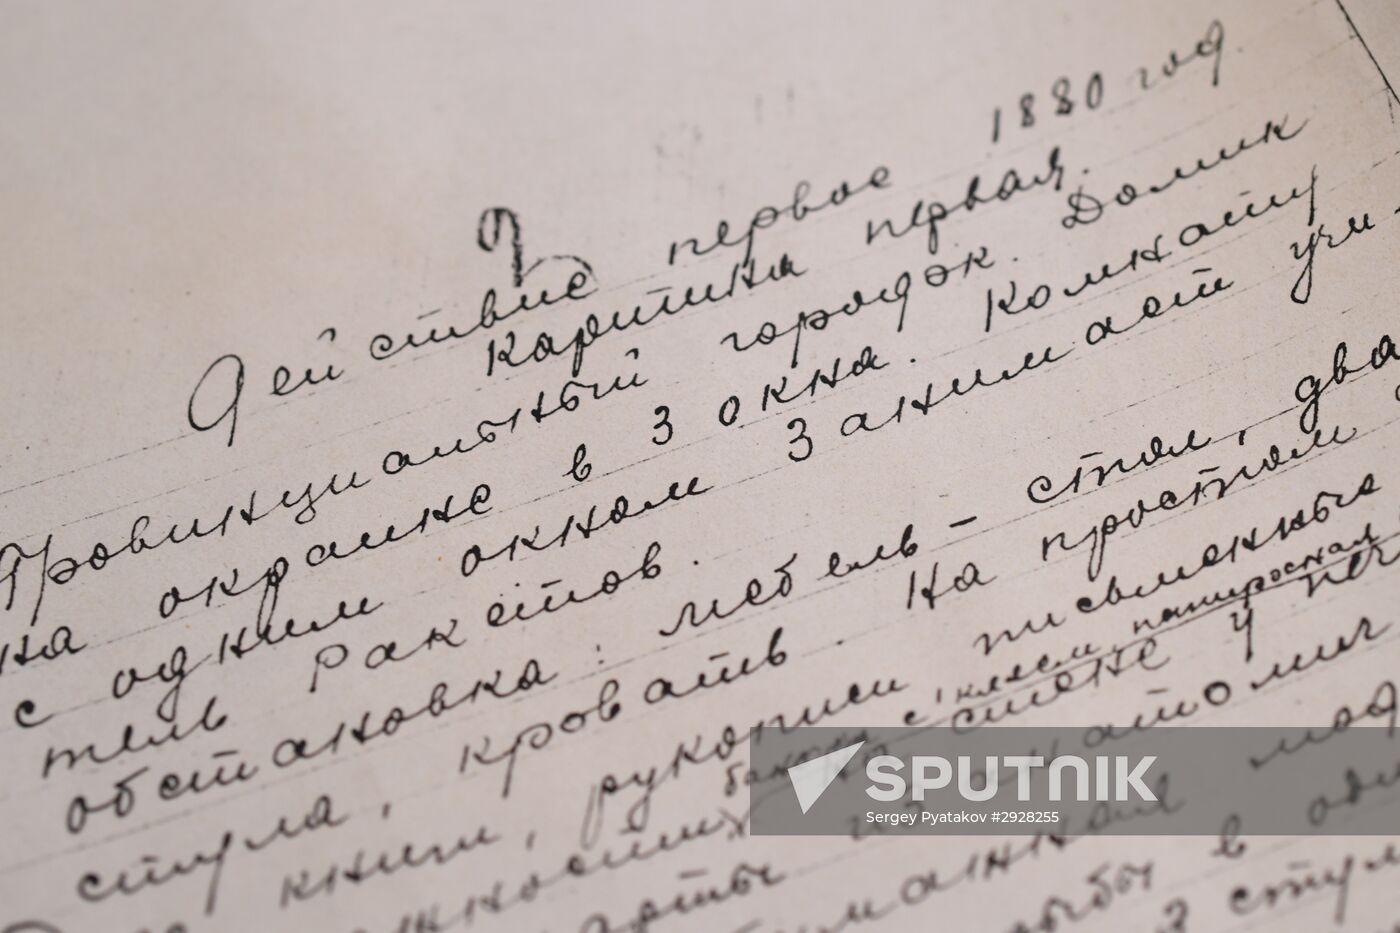 1880 год.
Действие первое
Картина первая.
Провинциальный городок. Домик
на окраине в 3 окна. Комнату
с одним окном занимает учи-
тель Ракетов.
обстановка: мебель - стол, два
стула, кровать. На простом
книги, рукописи письменные
банка с клеем, папиросная
стене у
анатомич
манная
рыбы в
3 стул
SPUTNIK
Sergey Pyatakov #2928255